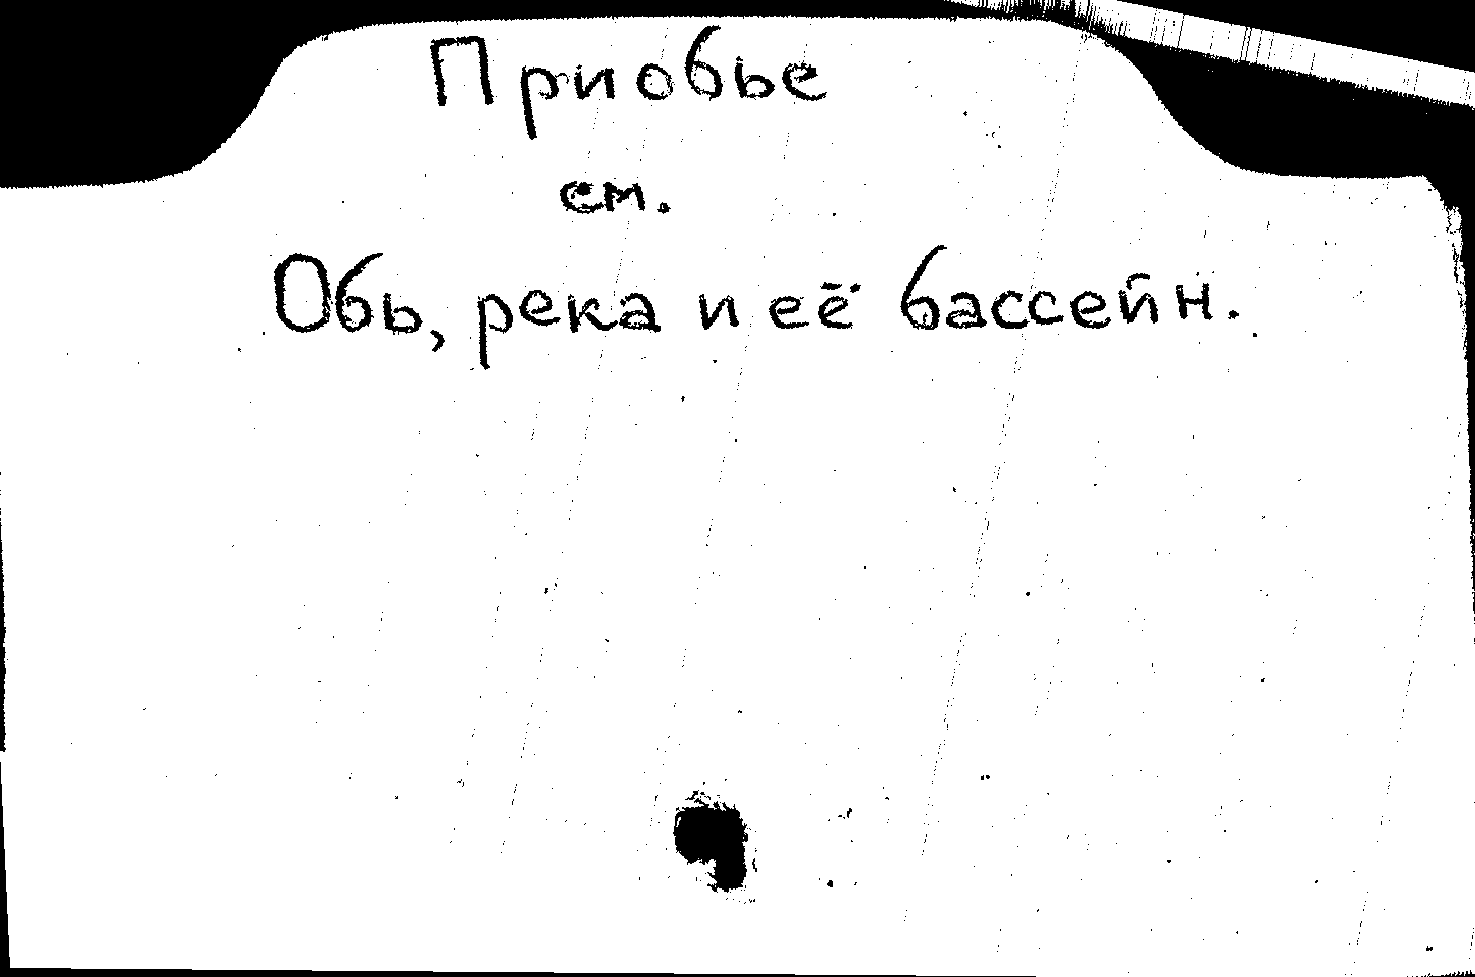 Приобье
см.
Обь, река и её бассейн.